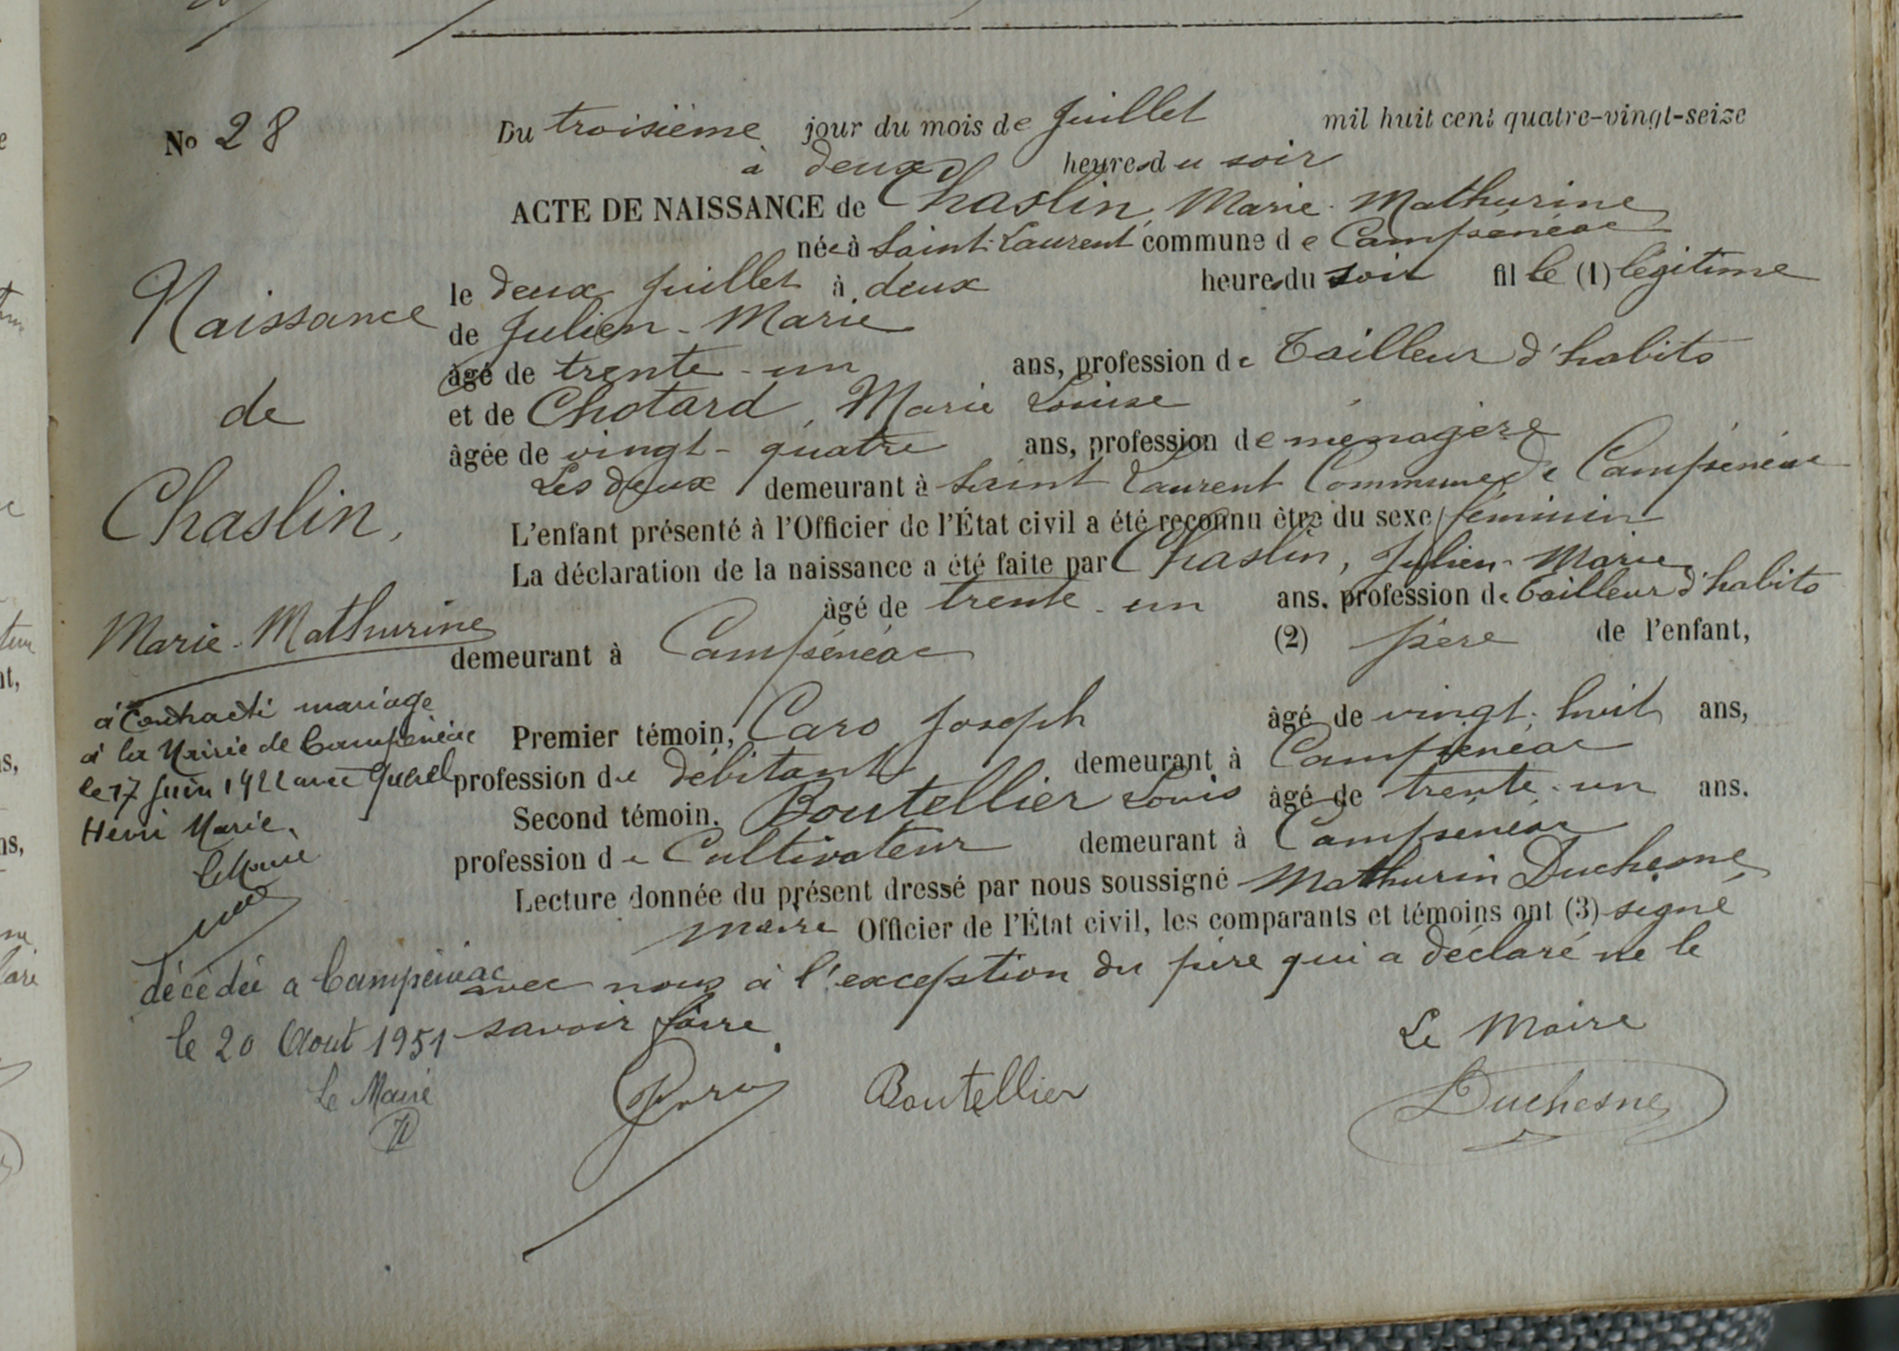 No 28
Du troisième jour du mois de Juillet mil huit cent quatre-vingt-seize
à deux heures du soir
ACTE DE NAISSANCE de Chaslin, Marie-Mathurine
née à Saint-Laurent commune de Campénéac
le deux Juillet à deux heures du soir fille (1) légitime
de Julien-Marie
âgé de trente-un ans, profession de Tailleur d'habits
et de Chotard, Marie Louise
âgée de vingt-quatre ans, profession de ménagère
Les deux demeurant à Saint Laurent Commune de Campénéac
L'enfant présenté à l'Officier de l'État civil a été reconnu être du sexe féminin
La déclaration de la naissance a été faite par Chaslin, Julien-Marie
âgé de trente-un ans, profession de Tailleur d'habits
demeurant à Campénéac (2) père de l'enfant,
Premier témoin, Caro Joseph âgé de vingt-huit ans,
profession de débitant demeurant à Campénéac
Second témoin, Boutellier Louis âgé de trente-un ans.
profession de Cultivateur demeurant à Campénéac
Lecture donnée du présent dressé par nous soussigné Mathurin Duchesne,
maire Officier de l'État civil, les comparants et témoins ont (3) signé
avec nous à l'exception du père qui a déclaré ne le
savoir faire.
Le Maire
Caro Boutellier Duchesne
Naissance
de
Chaslin,
Marie-Mathurine
a Contracté mariage
à la Mairie de Campénéac
le 17 Juin 1922 avec
Henri Marie.
Le Maire
décédée a Campénéac
le 20 Aout 1951
Le Maire